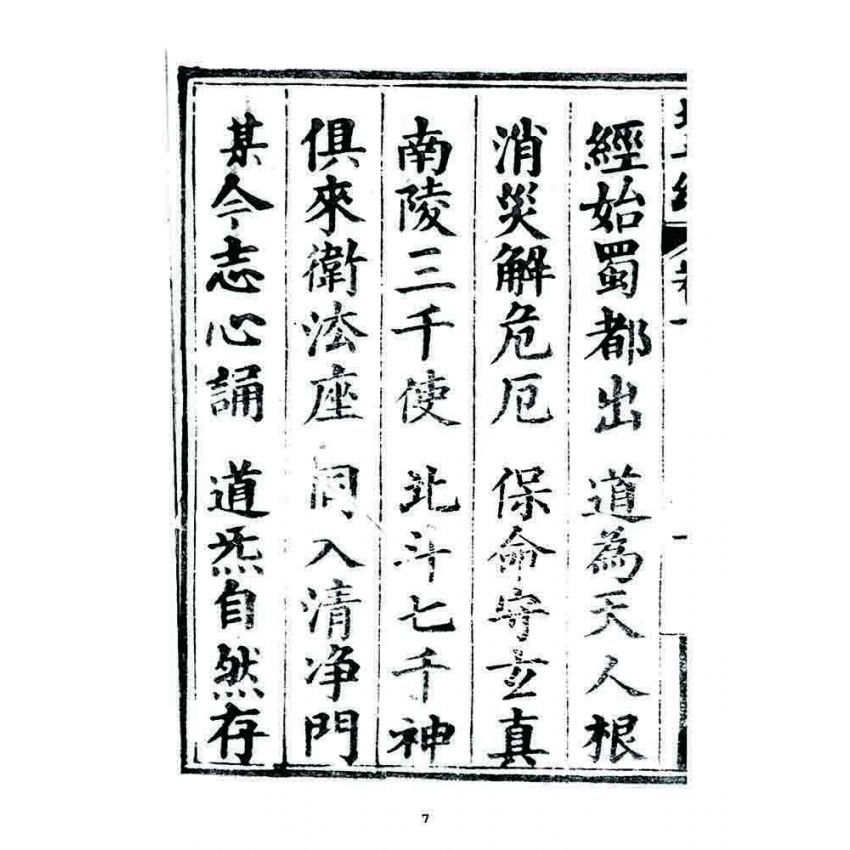 經始蜀都出 道為天人根
消災解危厄 保命守玄真
南陵三千使 北斗七千神
俱來衛法座 同入清净門
某今志心誦 道炁自然存
7